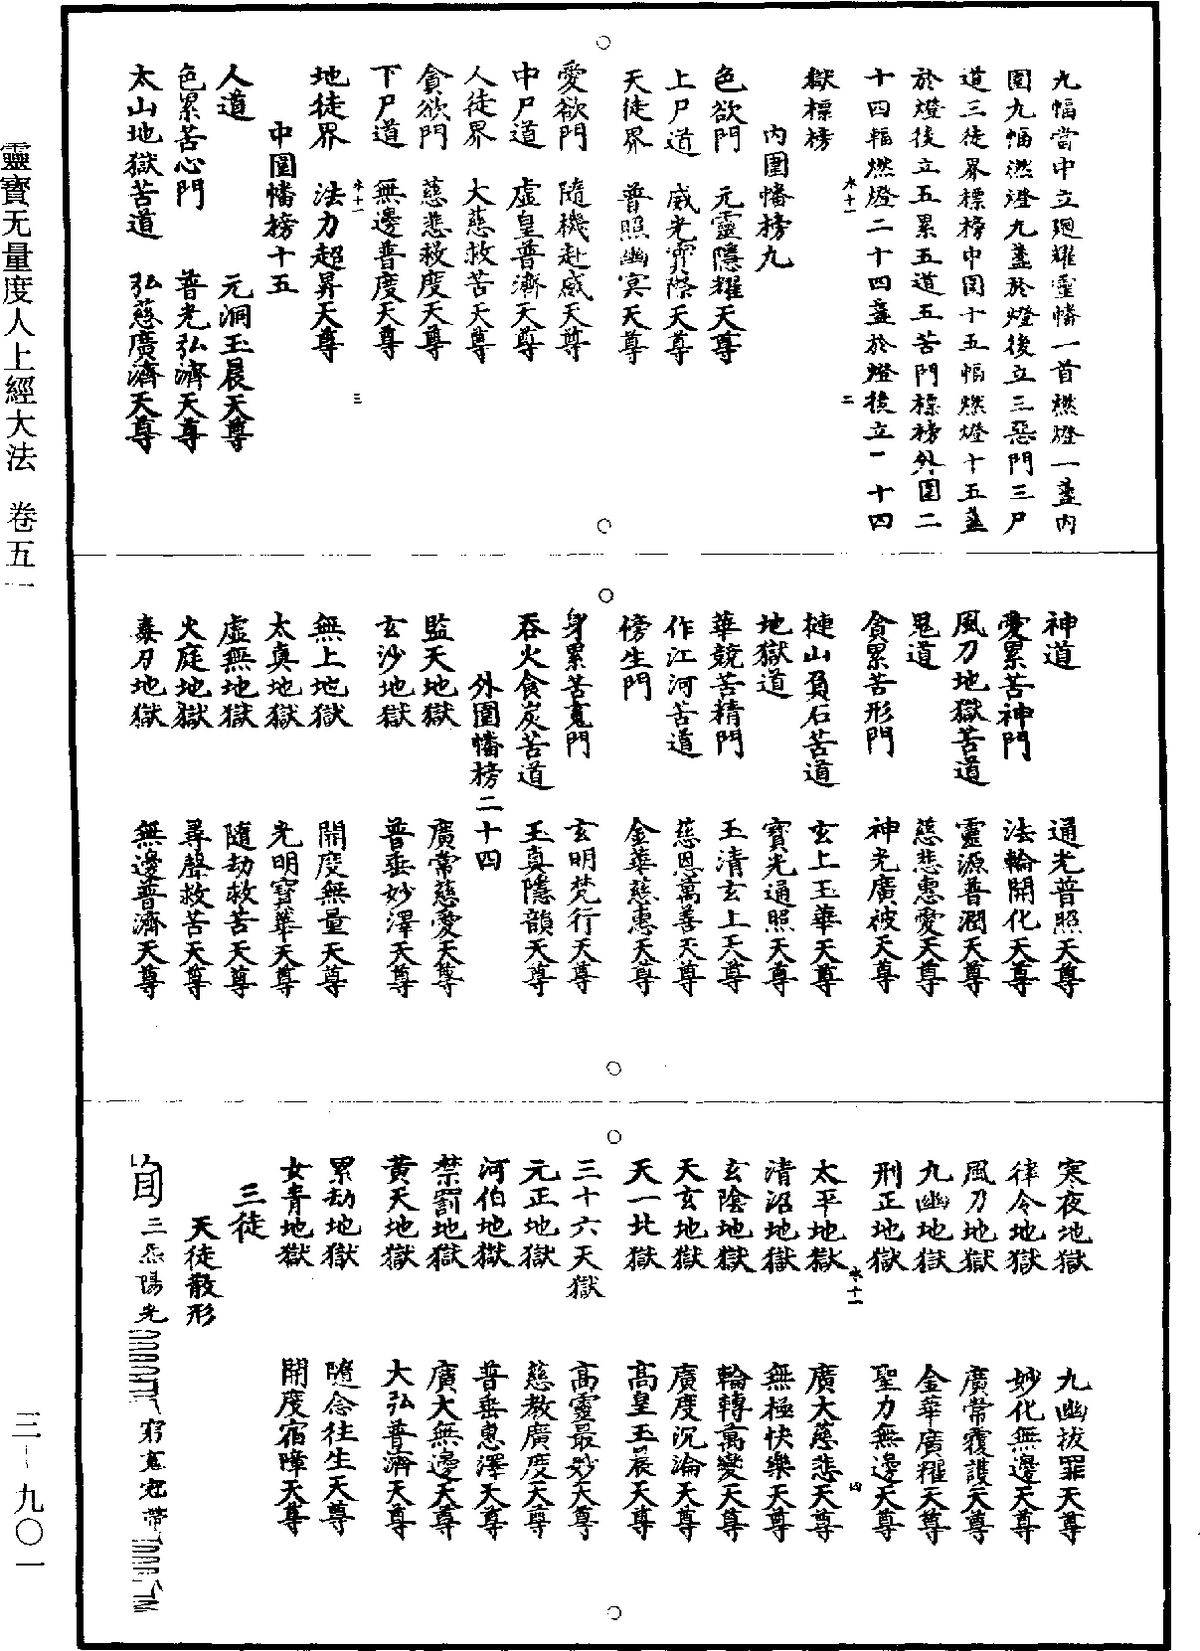 九幅當中立廻耀靈幡一首燃燈一盞內
圍九幅燃燈九盞於燈後立三惡門三尸
道三徒界標榜中圍十五幅燃燈十五盞
於燈後立五累五道五苦門標榜外圍二
十四輻燃燈二十四盞於燈後立二十四
獄標榜
水十一 二
內圍幡榜九
色欲門 元靈隱耀天尊
上尸道 威光實際天尊
天徒界 普照幽冥天尊
愛欲門 隨機赴感天尊
中尸道 虛皇普濟天尊
人徒界 大慈救苦天尊
貪欲門 慈悲救度天尊
下尸道 無邊普度天尊
水十一 三
地徒界 法力超昇天尊
中圍幡榜十五
人道 元洞玉晨天尊
色累苦心門 普光弘濟天尊
太山地獄苦道 弘慈廣濟天尊
神道 通光普照天尊
愛累苦神門 法輪開化天尊
風刀地獄苦道 靈源普潤天尊
鬼道 慈悲惠愛天尊
貪累苦形門 神光廣被天尊
摙山負石苦道 玄上玉華天尊
地獄道 寶光通照天尊
華競苦精門 玉清玄上天尊
作江河苦道 慈恩萬善天尊
傍生門 金華慈惠天尊
身累苦䰟門 玄明梵行天尊
吞火食炭苦道 玉真隱韻天尊
外圍幡榜二十四
監天地獄 廣常慈愛天尊
玄沙地獄 普垂妙澤天尊
無上地獄 開度無量天尊
太真地獄 光明寶華天尊
虛無地獄 隨劫救苦天尊
火庭地獄 尋聲救苦天尊
毒刃地獄 無邊普濟天尊
寒夜地獄 九幽拔罪天尊
律令地獄 妙化無邊天尊
風刀地獄 廣常覆護天尊
九幽地獄 金華廣耀天尊
刑正地獄 聖力無邊天尊
水十一 四
太平地獄 廣大慈悲天尊
清沼地獄 無極快樂天尊
玄陰地獄 輪轉萬變天尊
天玄地獄 廣度沉淪天尊
天一北獄 高皇玉晨天尊
三十六天獄 高靈最妙天尊
元正地獄 慈教廣度天尊
河伯地獄 普垂惠澤天尊
禁罰地獄 廣大無邊天尊
黃天地獄 大弘普濟天尊
累劫地獄 隨念往生天尊
女青地獄 開度宿障天尊
三徒
天徒散形
三炁陽光
靈寶无量度人上經大法 卷五一
三－九〇一